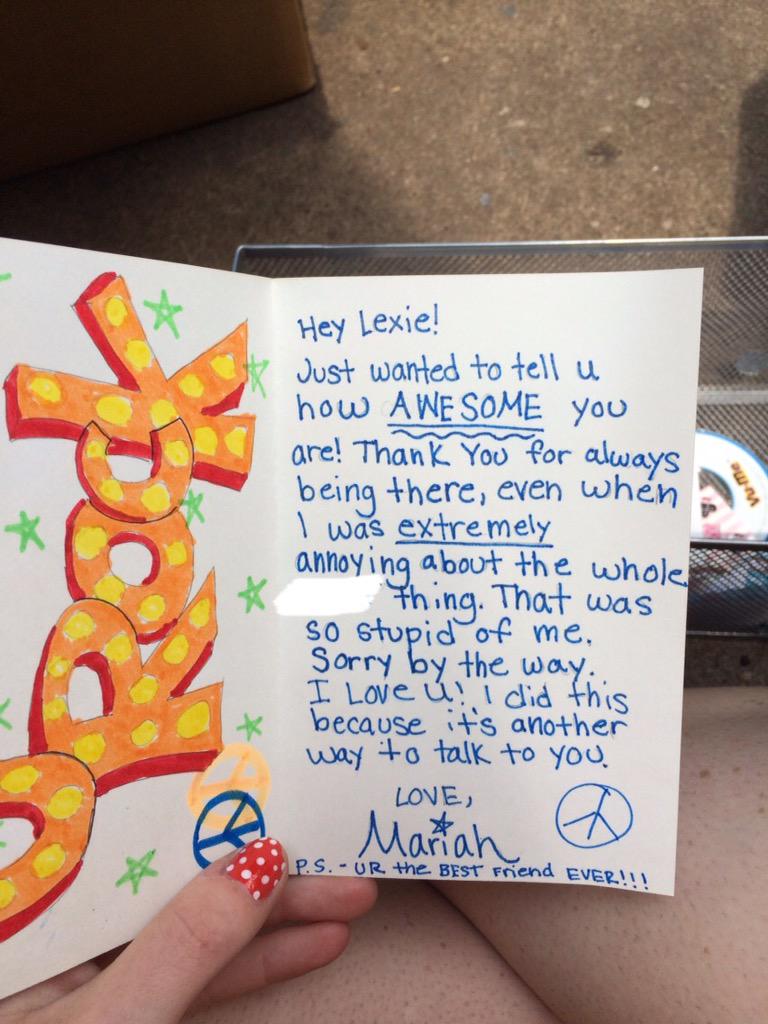 U ROCK
Hey Lexie!
Just wanted to tell u
how AWESOME you
are! Thank You for always
being there, even when
I was extremely
annoying about the whole
thing. That was
so stupid of me.
Sorry by the way.
I Love U! I did this
because it's another
way to talk to you.
LOVE,
Mariah
P.S. - UR the BEST Friend EVER!!!
Vu-Me